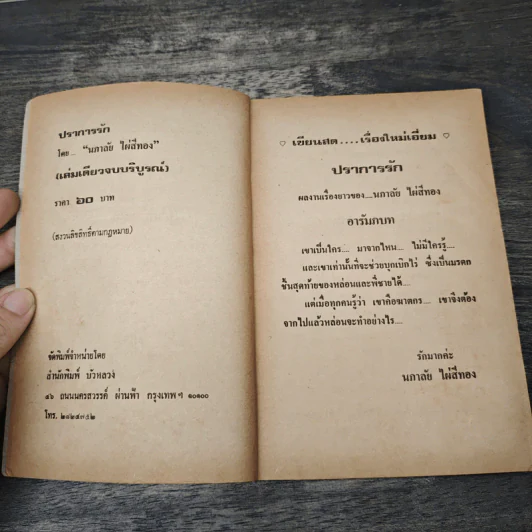 ปราการรัก
โดย... "นภาลัย ไผ่สีทอง"
(เล่มเดียวจบบริบูรณ์)
ราคา ๖๐ บาท
(สงวนลิขสิทธิ์ตามกฎหมาย)
จัดพิมพ์จำหน่ายโดย
สำนักพิมพ์ บัวหลวง
๔๖ ถนนนครสวรรค์ ผ่านฟ้า กรุงเทพฯ ๑๐๑๐๐
โทร.
เขียนสด....เรื่องใหม่เอี่ยม
ปราการรัก
ผลงานเรื่องยาวของ...นภาลัย ไผ่สีทอง
อารัมภบท
เขาเป็นใคร... มาจากไหน... ไม่มีใครรู้...
และเขาเท่านั้นที่จะช่วยบุกเบิกไร่ ซึ่งเป็นมรดก
ชิ้นสุดท้ายของหล่อนและพี่ชายได้...
แต่เมื่อทุกคนรู้ว่า เขาคือฆาตกร... เขาจึงต้อง
จากไปแล้วหล่อนจะทำอย่างไร...
รักมากค่ะ
นภาลัย ไผ่สีทอง